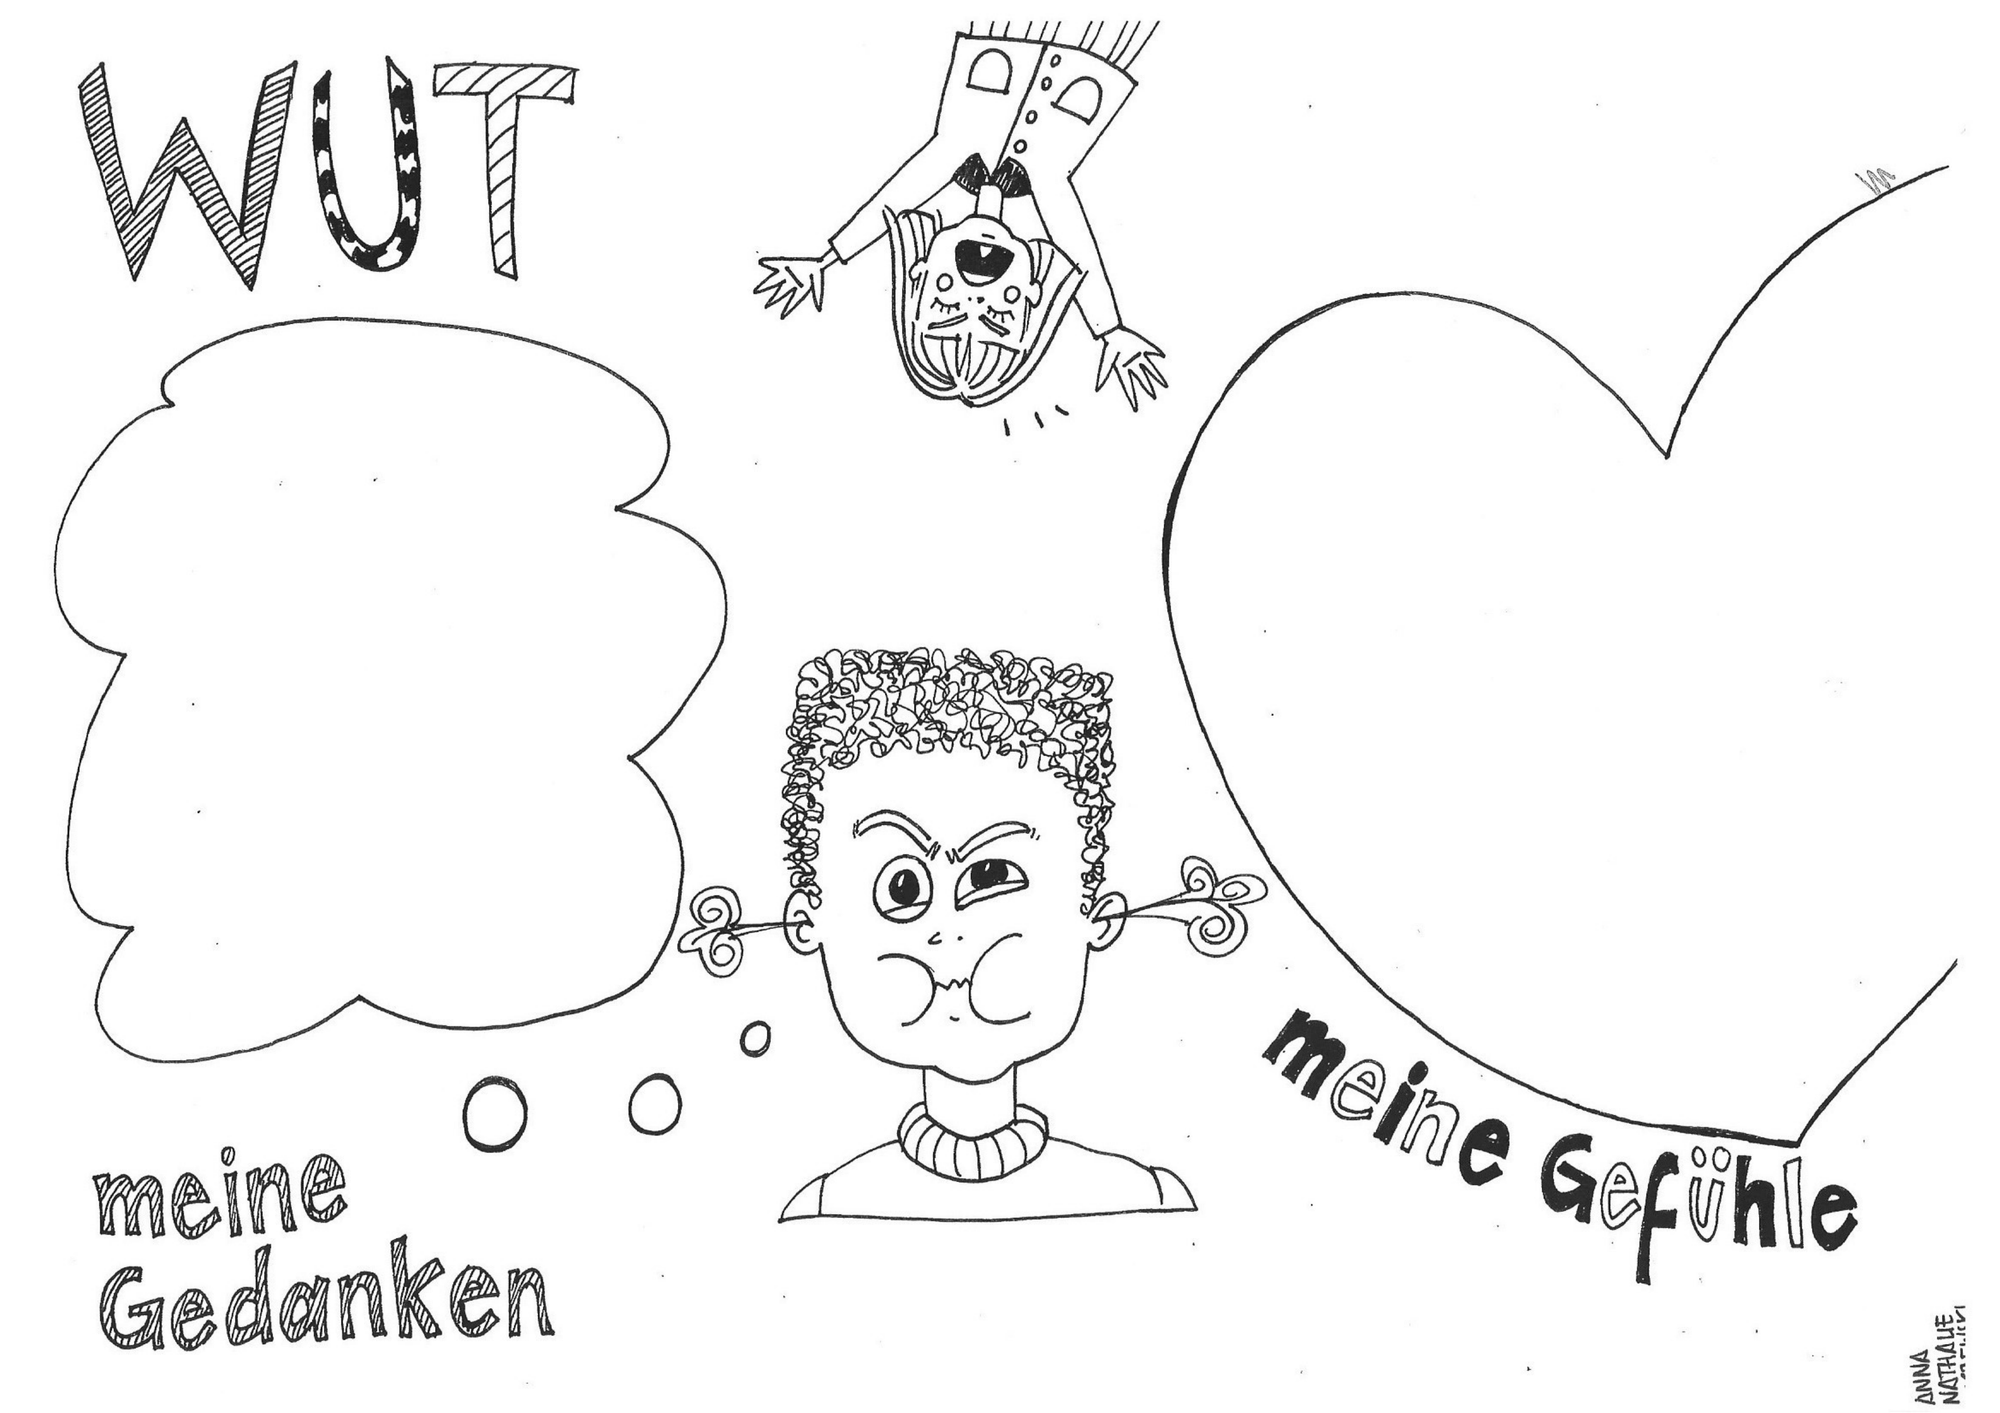 WUT
meine
Gedanken
meine Gefühle
ANNA
NATHALIE